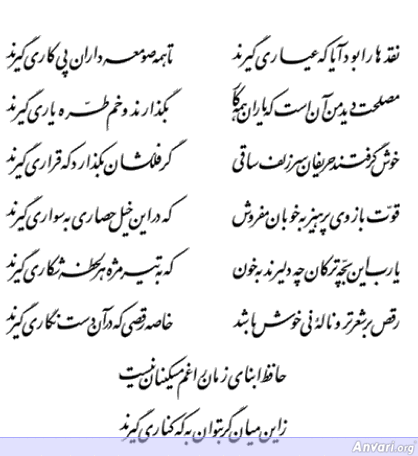 نقدها را بود آیا که عیاری گیرند تا همه صومعه داران پی کاری گیرند
مصلحت دید من آن است که یاران همه کار بگذارند و خم طره یاری گیرند
خوش گرفتند حریفان سر زلف ساقی گر فلکشان بگذارد که قراری گیرند
قوت بازوی پرهیز به خوبان مفروش که در این خیل حصاری به سواری گیرند
یا رب این بچه ترکان چه دلیرند به خون که به تیر مژه هر لحظه شکاری گیرند
رقص بر شعر تر و ناله نی خوش باشد خاصه رقصی که در آن دست نگاری گیرند
حافظ ابنای زمان را غم مسکینان نیست
زین میان گر بتوان به که کناری گیرند
Anvari.org